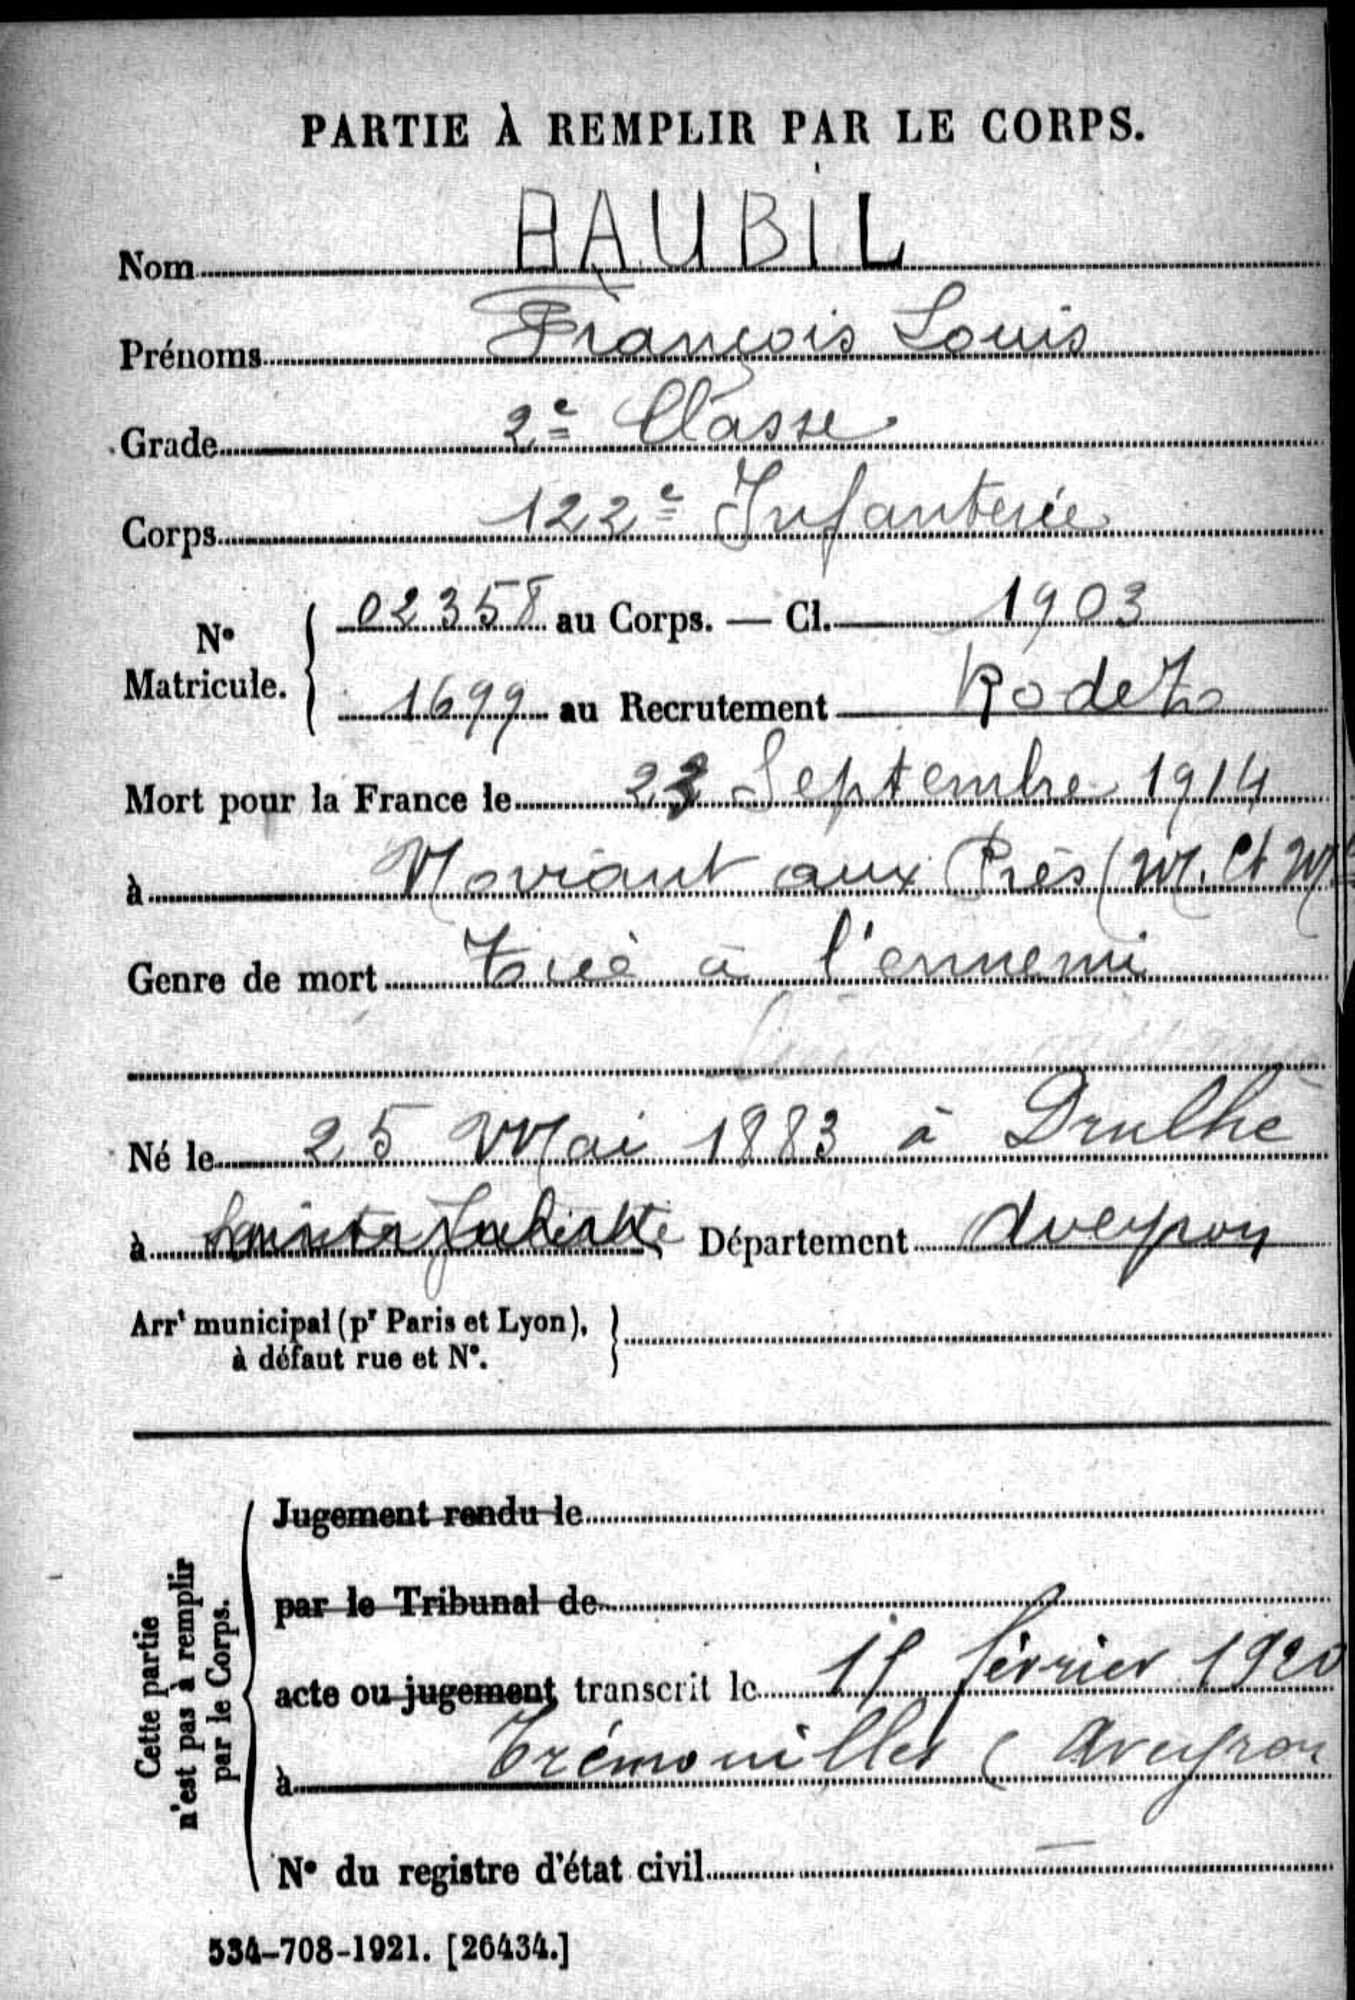 PARTIE À REMPLIR PAR LE CORPS.
Nom HAUBIL
Prénoms François Louis
Grade 2e Classe
Corps 122e Infanterie
N° Matricule. 02358 au Corps. — Cl. 1903
1699 au Recrutement Rodez
Mort pour la France le 23 Septembre 1914
à Noviant aux Prés (M. et M.
Genre de mort Tué à l'ennemi
Né le 25 Mai 1883 à Drulhe
à Département Aveyron
Arrt municipal (pr Paris et Lyon),
à défaut rue et N°.
Cette partie n'est pas à remplir par le Corps.
Jugement rendu le
par le Tribunal de
acte ou jugement transcrit le 15 février 1920
à Trémouilles (Aveyron
N° du registre d'état civil —
534-708-1921. [26434.]